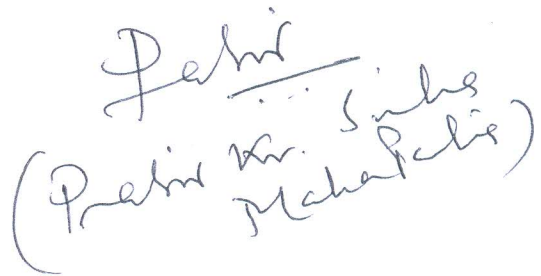 Prabir
(Prabir Kr. Sinha
Mahapatra)